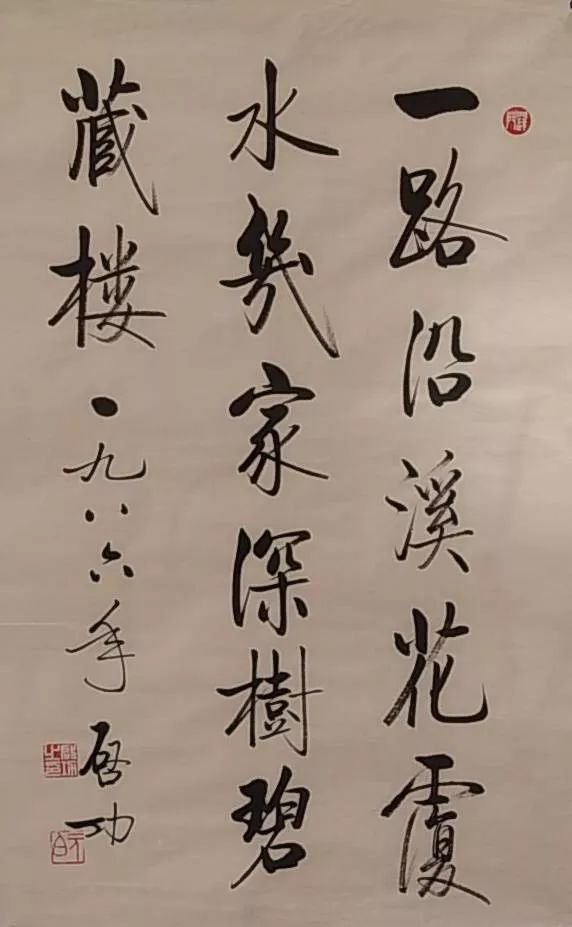 一路沿溪花覆
水幾家深樹碧
藏楼一九八六年啓功